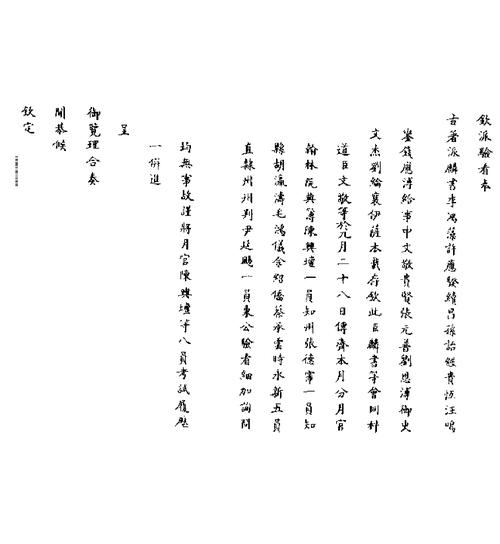 欽派驗看奉
旨著派麟書李鴻藻許應騤續昌孫詒經貴恆汪鳴
鑾錢應溥給事中文敬貴賢張元普劉恩溥御史
文杰劉綸襄伊薩本裁存欽此臣麟書等會同科
道臣文敬等於九月二十八日傳齊本月分月官
翰林院典簿陳興壇一員知州張德霈一員知
縣胡瀛濤毛鴻儀余紹僑蔡承雲時永新五員
直隸州州判尹廷颺一員秉公驗看細加詢問
均無事故謹將月官陳興壇等八員考試履歷
一併進
呈
御覽理合奏
聞恭候
欽定